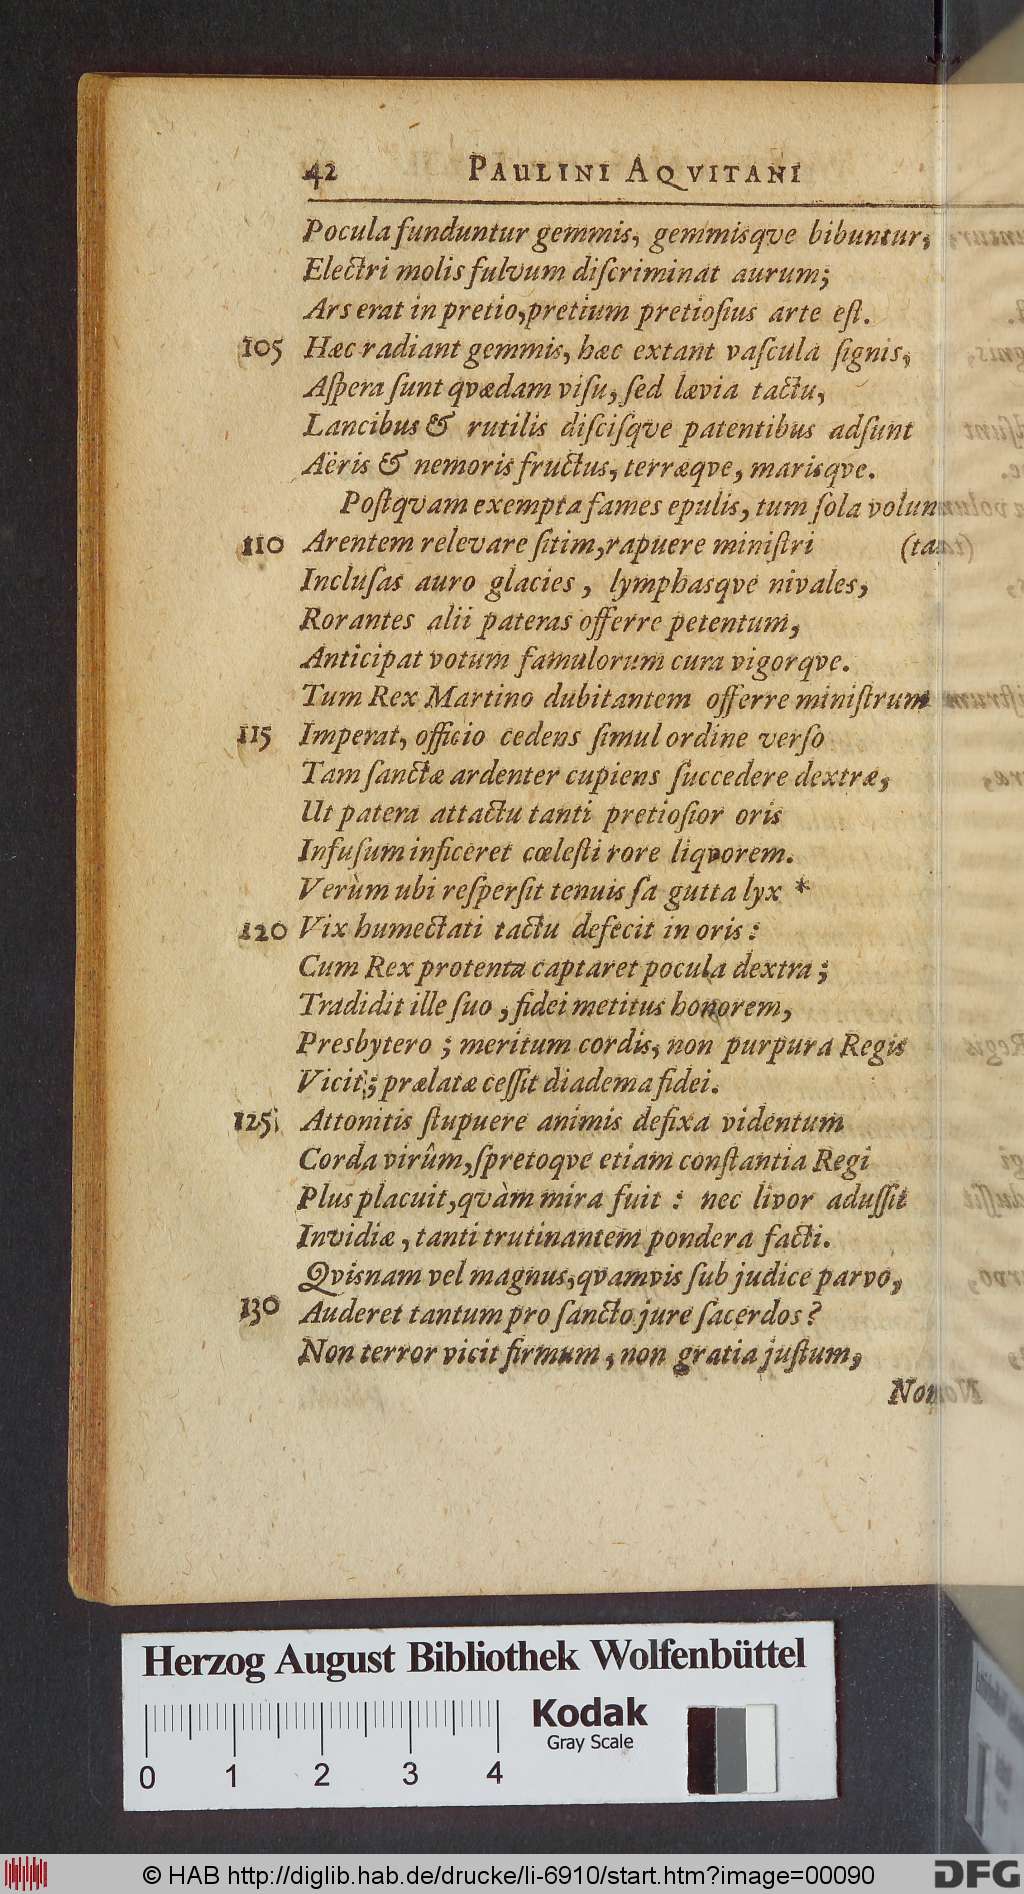 42 PAULINI AQVITANI
Pocula funduntur gemmis, gemmisqve bibuntur,
Electri molis fulvum diſcriminat aurum;
Ars erat in pretio, pretium pretioſius arte eſt.
105 Hæc radiant gemmis, hæc extant vaſcula ſignis,
Aſpera ſunt qvædam viſu, ſed lævia tactu,
Lancibus & rutilis diſciſqve patentibus adſunt
Aëris & nemoris fructus, terræqve, marisqve.
Poſtqvam exempta fames epulis, tum ſola volun
110 Arentem relevare ſitim, rapuere miniſtri (ta
Incluſas auro glacies, lymphasqve nivales,
Rorantes alii pateras offerre petentum,
Anticipat votum famulorum cura vigorqve.
Tum Rex Martino dubitantem offerre miniſtrum
115 Imperat, officio cedens ſimul ordine verſo
Tam ſanctæ ardenter cupiens ſuccedere dextræ,
Ut patera attactu tanti pretioſior oris
Infuſum inficeret cœleſti rore liqvorem.
Verùm ubi reſperſit tenuis ſa gutta lyx *
120 Vix humectati tactu defecit in oris:
Cum Rex protenta captaret pocula dextra;
Tradidit ille ſuo, fidei metitus honorem,
Presbytero; meritum cordis, non purpura Regis
Vicit; prælatæ ceſſit diadema fidei.
125 Attonitis ſtupuere animis defixa videntum
Corda virûm, ſpretoqve etiam conſtantia Regi
Plus placuit, quàm mira fuit: nec livor aduſſit
Invidiæ, tanti trutinantem pondera facti.
Qvisnam vel magnus, qvamvis ſub judice parvo,
130 Auderet tantum pro ſancto jure ſacerdos?
Non terror vicit firmum, non gratia juſtum,
Non
Herzog August Bibliothek Wolfenbüttel
Kodak
Gray Scale
0 1 2 3 4
© HAB http://diglib.hab.de/drucke/li-6910/start.htm?image=00090
DFG